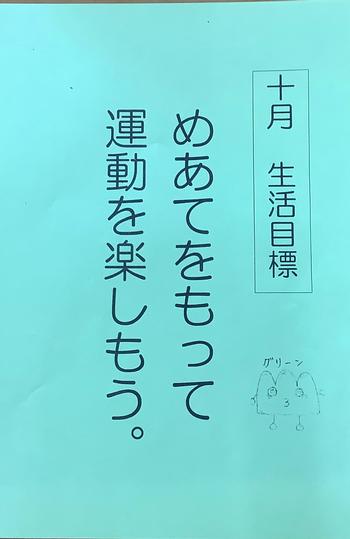 十月　生活目標
めあてをもって
運動を楽しもう。
グリーン